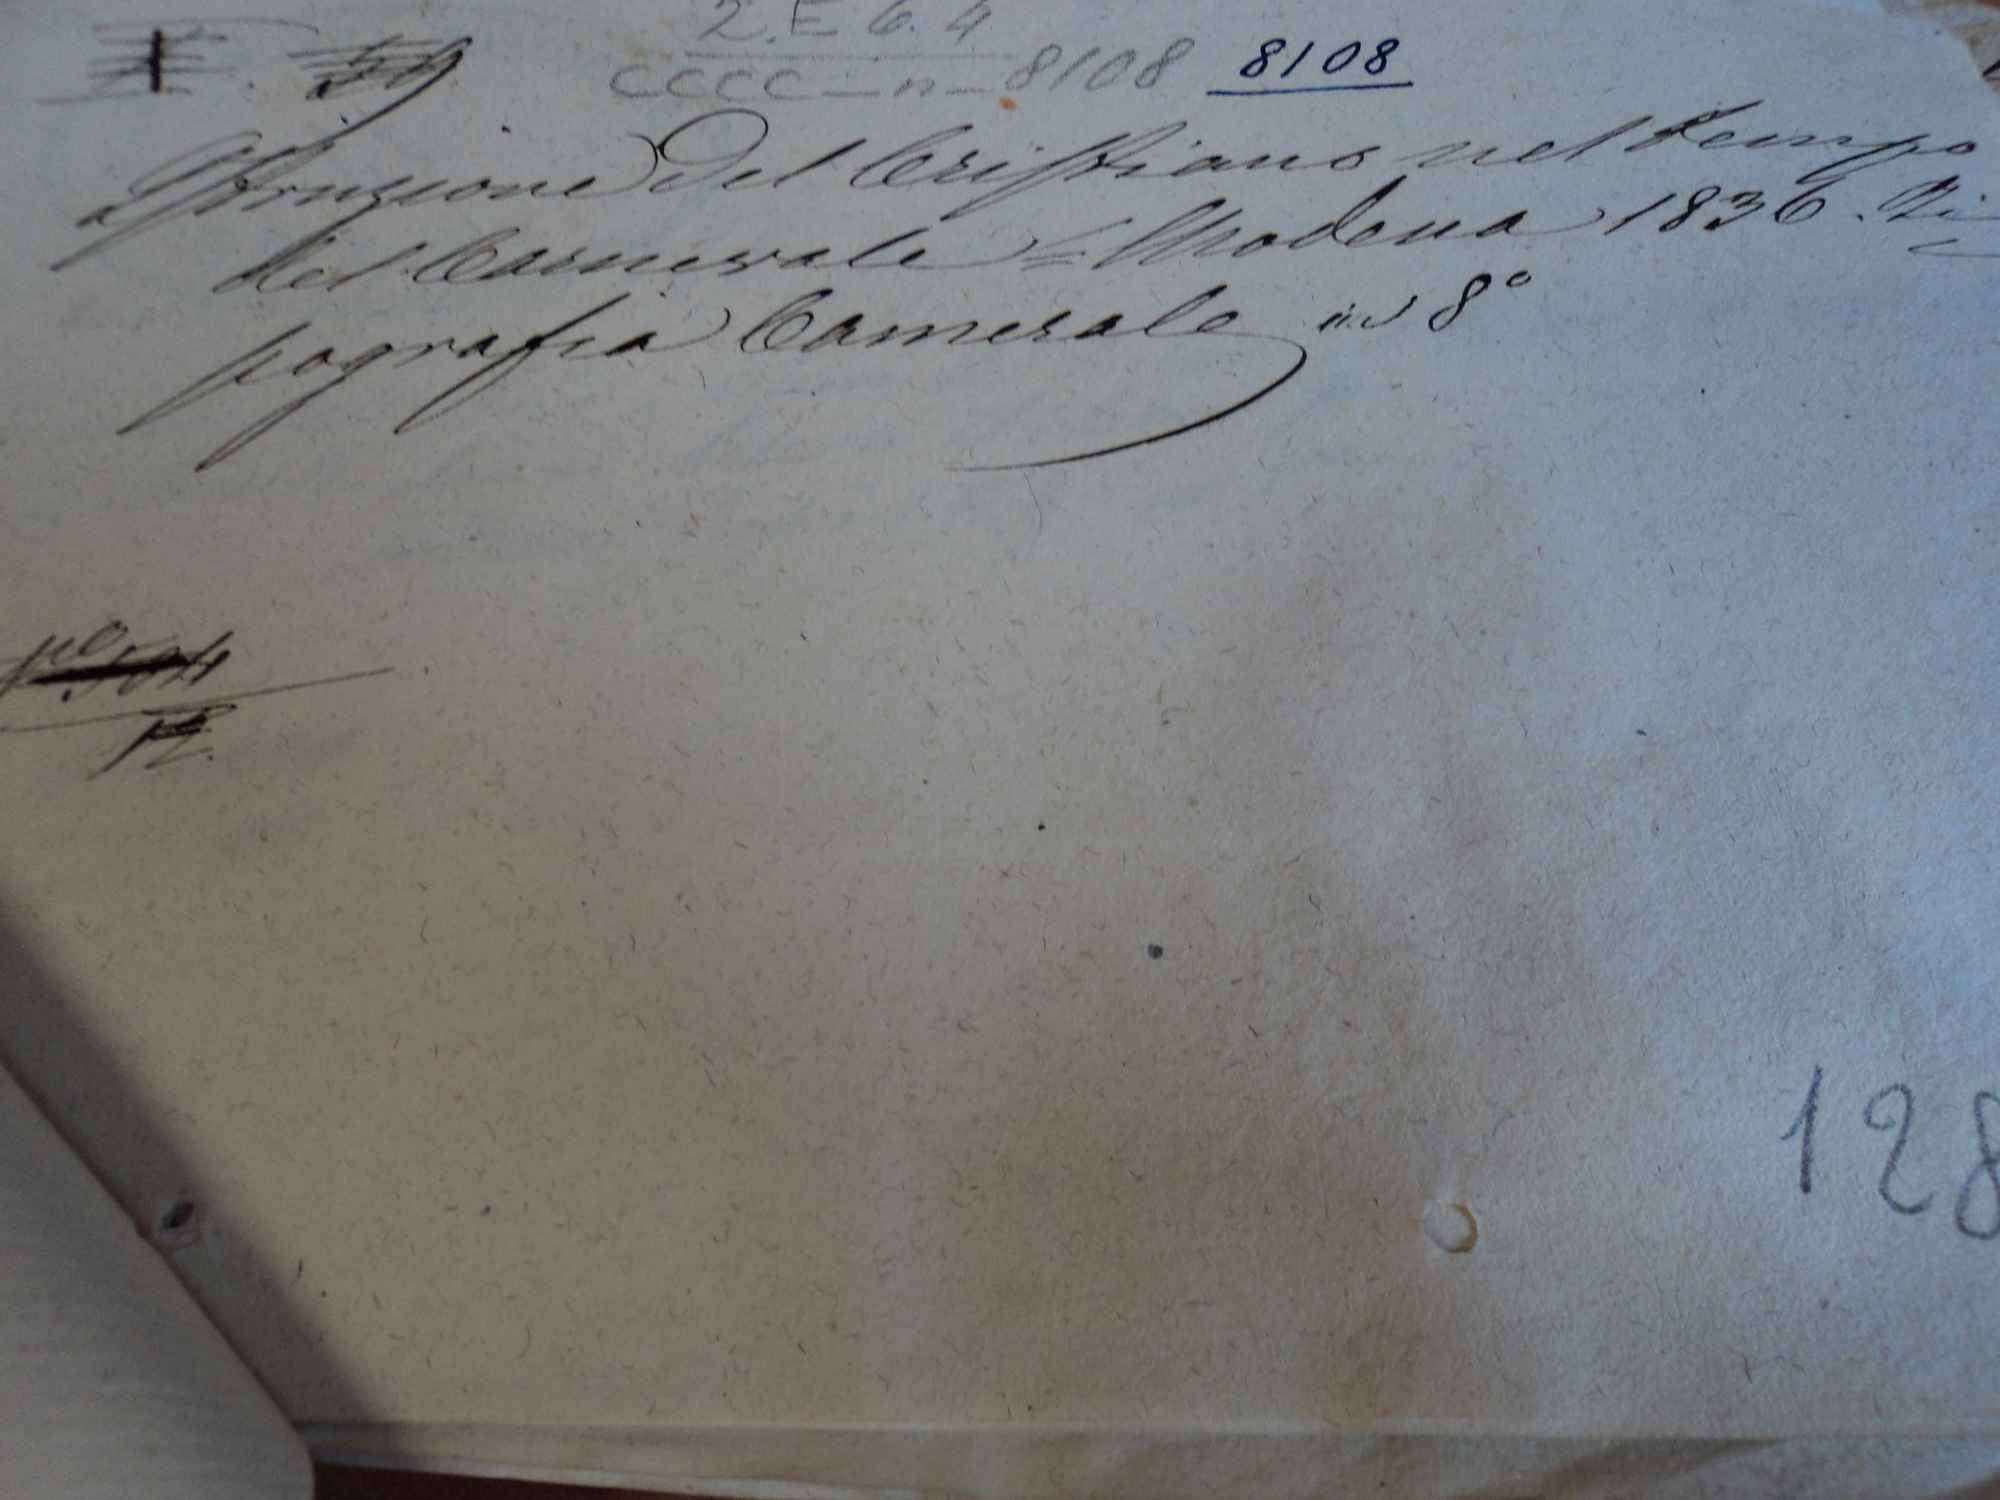 2.E 6.4
CCCC – n – 8108 8108
Istruzione del Cristiano nel tempo
del Carnevale = Modena 1836. Ti=
pografia Camerale in 8°
128